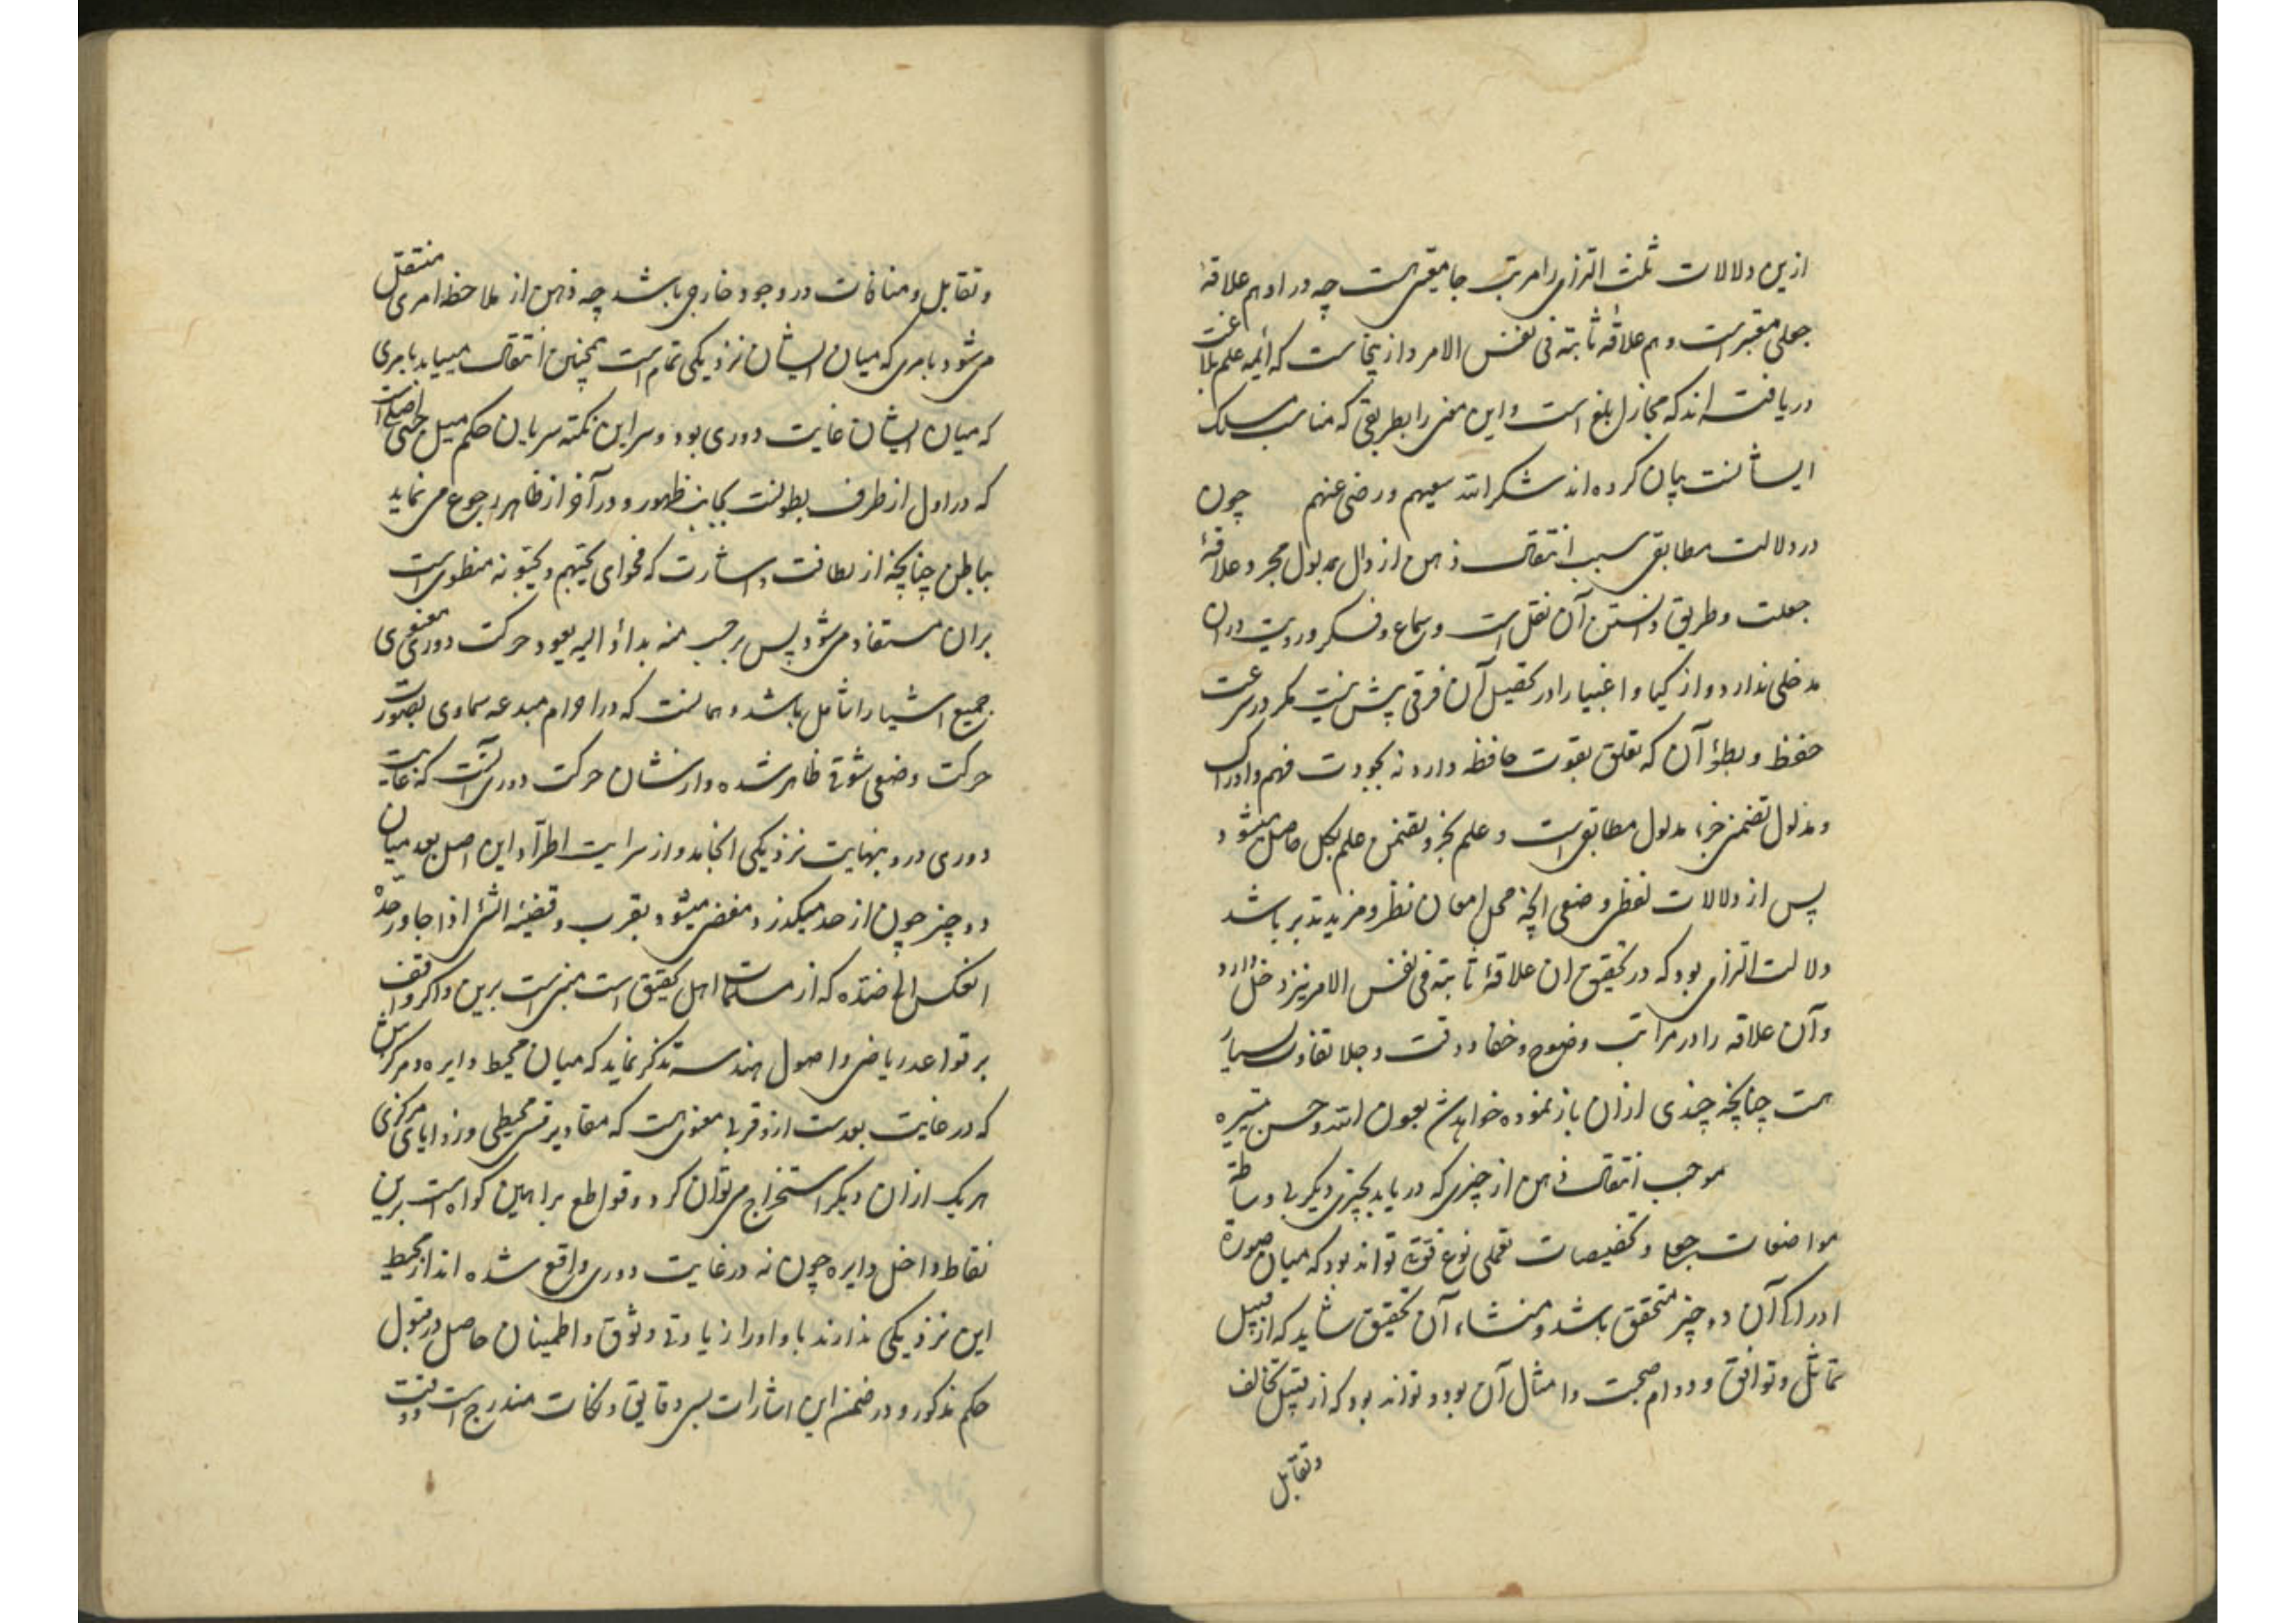 ازین دلالات ثلث التزامی را مرتبه جامعیتی هست چه در او هم علاقهٔ
جعلی معتبر است و هم علاقهٔ ثابته فی نفس الامر و ازینجاست که ائمه علم بلاغت
دریافته اند که مجاز ابلغ است و این معنی را بطریقی که مناسب مسلک
ایشانست بیان کرده اند شکر الله سعیهم و رضی عنهم چون
در دلالت مطابقی سبب انتقال ذهن از دال بمدلول مجرد علاقهٔ
جعلست و طریق دانستن آن نقل است و سماع و فکر و رویت در ان
مدخلی ندارد و ازکیا و اغبیا را در تحصیل آن فرقی پیش نیست مگر در سرعت
حفظ و بطؤ آن که تعلق بقوت حافظه دارد نه بجودت فهم و ادراک
و مدلول تضمنی جزء مدلول مطابقی است و علم بجزو بضمن علم بکل حاصل میشود
پس از دلالات لفظی وضعی انچه محل امعان نظر و مزید تدبر باشد
دلالت التزامی بود که در تحقیق ان علاقهٔ ثابته فی نفس الامر نیز دخل دارد
وآن علاقه را در مراتب وضوح و خفا و دقت و جلا تفاوت بسیار
هست چنانچه چندی ازان باز نموده خواهد شد بعون الله و حسن تیسیره
موجب انتقال ذهن از چیزی که دریابد بچیزی دیگر بی وساطة
مواضعات جعلی و تخصیصات تعملی نوع قوتی تواند بود که میان صورة
ادراکی آن دو چیز متحقق باشد و منشاء آن تحقیق شاید که از قبیل
تماثل و توافق و دوام صحبت و امثال آن بود و تواند بود که از قبیل تخالف
وتقابل
و تقابل و منافات در وجود خارجی باشد چه ذهن از ملاحظه امری منتقل
می شود بامری که میان ایشان نزدیکی تمام است همچنین انتقال مییابد بامری
که میان ایشان غایت دوری بود و سر این نکته سریان حکم میل حبی اصلی است
که در اول از طرف بطونست بجانب ظهور و در آخر از ظاهر رجوع می نماید
بباطن چنانچه از لطافت اشارت که فحوای یحبهم و یحبونه منظوی است
بران مستفاد می شود پس بر حسب منه بدأ و الیه یعود حرکت دوری معنوی
جمیع اشیا را شامل باشد و همانست که در اجرام مبدعه سماوی بصورت
حرکت وضعی شوقی ظاهر شده و از نشان حرکت دوری آنست که غایت
دوری درو بنهایت نزدیکی انجامد و از سرایت اطراد این اصل بعد میان
دو چیز چون از حد میگذرد مفضی میشود بقرب و قضیهٔ الشئ اذا جاوز حدّه
انعکس الی ضدّه که از مسلمات اهل تحقیق است مبنی است برین و اگر واقف
بر قواعد ریاضی و اصول هندسه تذکر نماید که میان محیط دایره و مرکزش
که در غایت بعدست ازو قربی معنوی هست که مقادیر قسی محیطی و زوایای مرکزی
هر یک ازان دیگر استخراج می توان کرد و قواطع براهین گواه است برین
نقاط داخل دایره چون نه در غایت دوری واقع شده اند از محیط
این نزدیکی ندارند با او او را زیادتی وثوق و اطمینان حاصل در قبول
حکم مذکور و در ضمن این اشارات بسی دقایق و نکات مندرج است